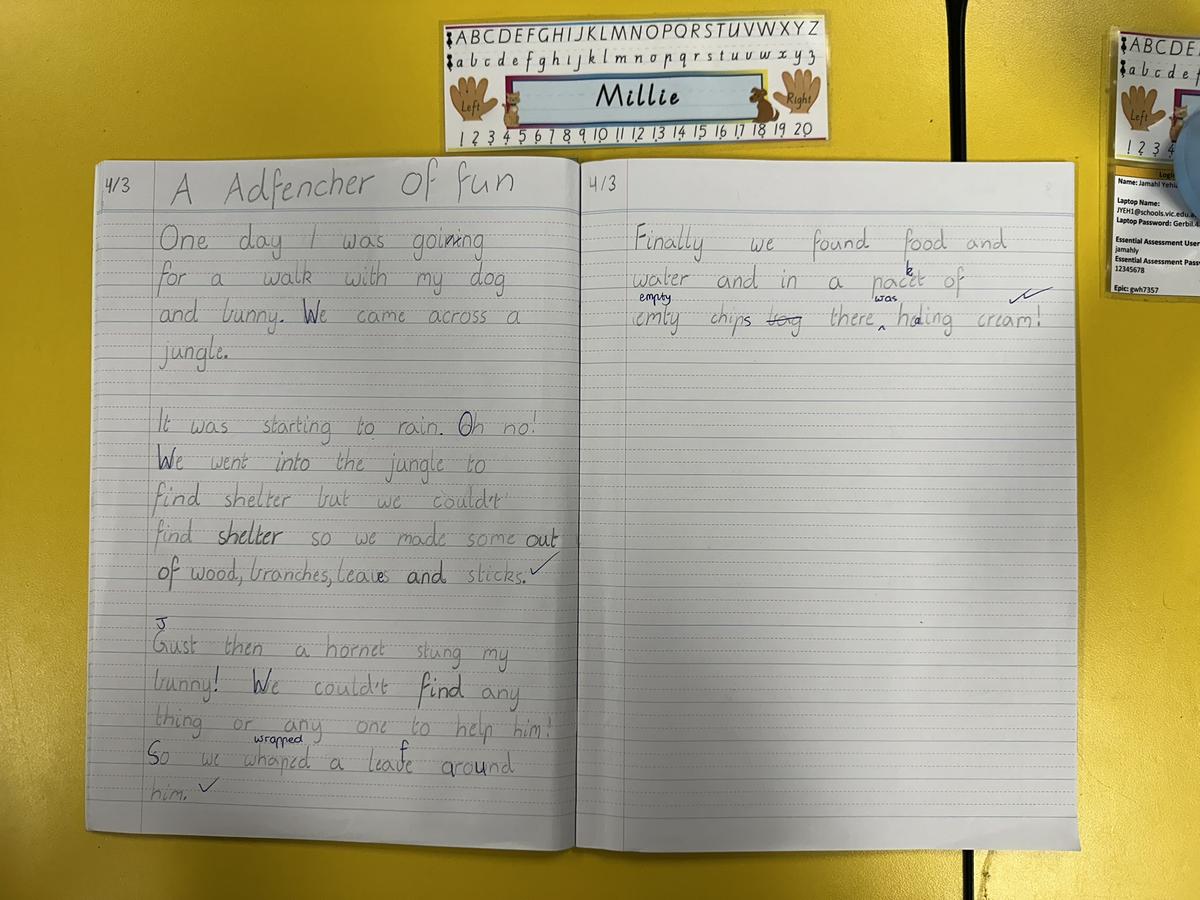 ABCDEFGHIJKLMNOPQRSTUVWXYZ
abcdefghijklmnopqrstuvwxyz
Left
Millie
Right
1 2 3 4 5 6 7 8 9 10 11 12 13 14 15 16 17 18 19 20
4/3
A Adfencher Of fun
One day I was goining
for a walk with my dog
and bunny. We came across a
jungle.
It was starting to rain. Oh no!
We went into the jungle to
find shelter but we couldn't
find shelter so we made some out
of wood, branches, leaves and sticks.
J
Gust then a hornet stung my
bunny! We couldn't find any
thing or any one to help him!
wrapped
So we whaped a leafe around
him.
4/3
Finally we found food and
water and in a packet of
empty was
emty chips bag there heling cream!
ABCDE
abcdef
Left
1 2 3 4
Name: Jamahl
Laptop Name:
JYEH1@schools.vic.edu.a
Laptop Password:
Essential Assessment User
jamahly
Essential Assessment Pass
12345678
Epic: gwh7357